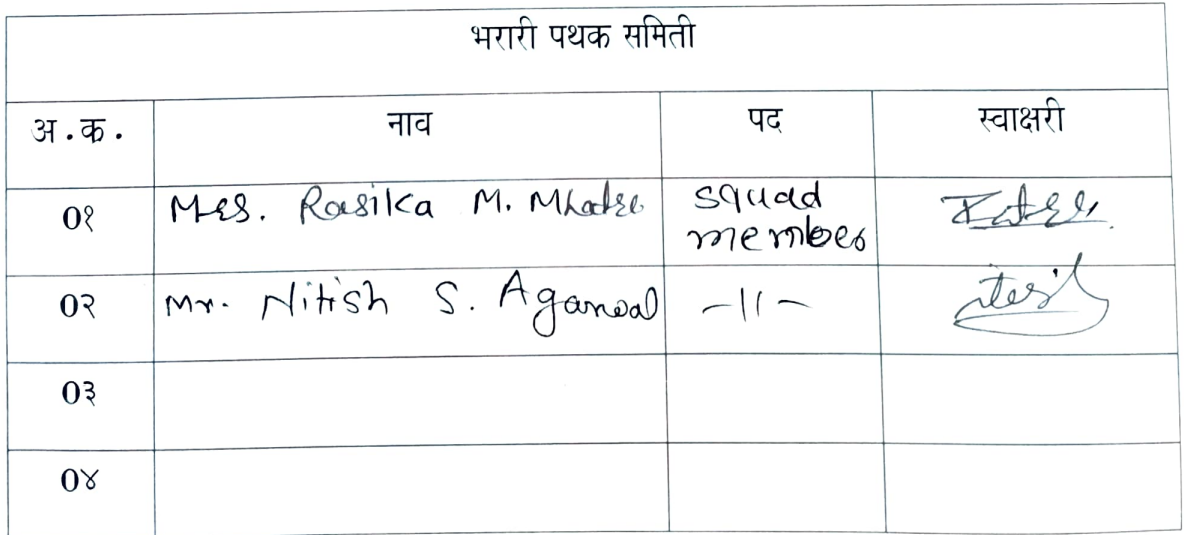 भरारी पथक समिती
अ.क. नाव पद स्वाक्षरी
०१ Mrs. Rasika M. Mhatre squad
member
०२ Mr. Nitish S. Agarwal -11-
०३
०४